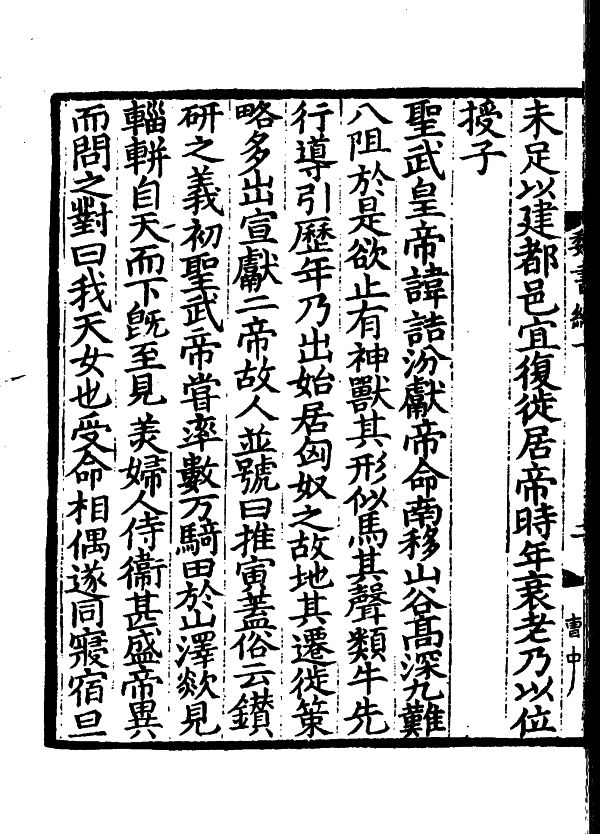 未足以建都邑宜復徙居帝時年衰老乃以位
授子
聖武皇帝諱詰汾獻帝命南移山谷髙深九難
八阻於是欲止有神獸其形似馬其聲類牛先
行導引歷年乃出始居匈奴之故地其遷徙策
略多出宣獻二帝故人並號曰推寅蓋俗云鑚
研之義初聖武帝嘗率數万騎田於山澤欻見
輜軿自天而下旣至見羙婦人侍衞甚盛帝異
而問之對曰我天女也受命相偶遂同寢宿旦
曹中